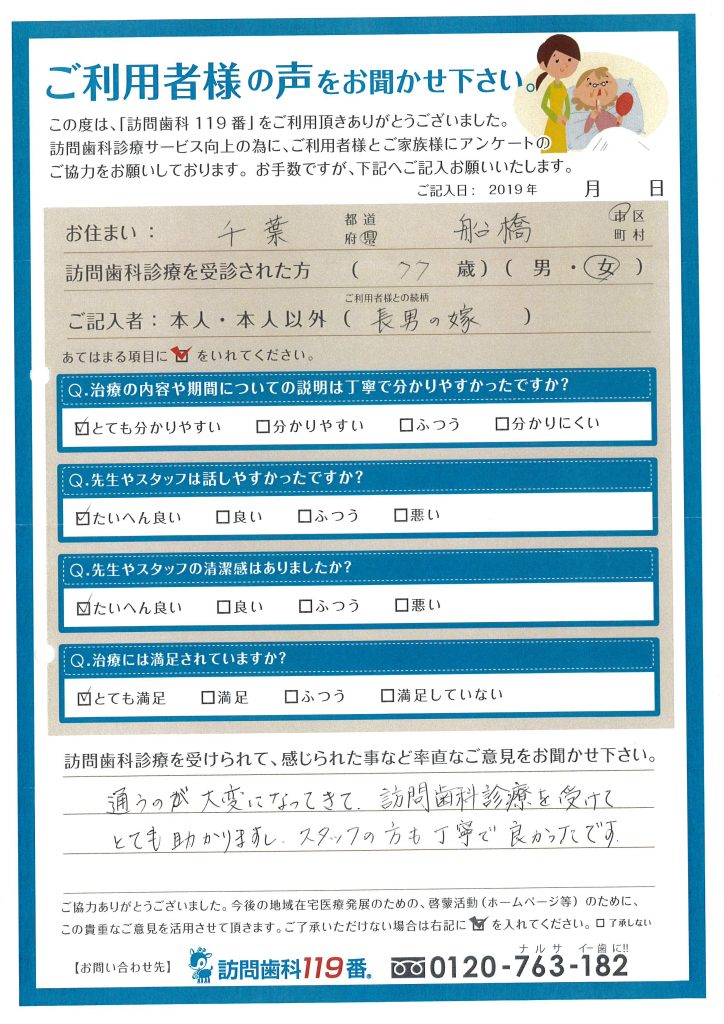 ご利用者様の声をお聞かせ下さい。
この度は、「訪問歯科119番」をご利用頂きありがとうございました。
訪問歯科診療サービス向上の為に、ご利用者様とご家族様にアンケートの
ご協力をお願いしております。お手数ですが、下記へご記入お願いいたします。
ご記入日: 2019年 月 日
お住まい: 千葉 都道府県 船橋 市区町村
訪問歯科診療を受診された方 ( 77 歳)( 男 ・ 女 )
ご利用者様との続柄
ご記入者: 本人・本人以外 ( 長男の嫁 )
あてはまる項目に☑をいれてください。
Q.治療の内容や期間についての説明は丁寧で分かりやすかったですか?
☑とても分かりやすい □分かりやすい □ふつう □分かりにくい
Q.先生やスタッフは話しやすかったですか?
☑たいへん良い □良い □ふつう □悪い
Q.先生やスタッフの清潔感はありましたか?
☑たいへん良い □良い □ふつう □悪い
Q.治療には満足されていますか?
☑とても満足 □満足 □ふつう □満足していない
訪問歯科診療を受けられて、感じられた事など率直なご意見をお聞かせ下さい。
通うのが大変になってきて、訪問歯科診療を受けて
とても助かりますし、スタッフの方も丁寧で良かったです。
ご協力ありがとうございました。今後の地域在宅医療発展のための、啓蒙活動(ホームページ等)のために、
この貴重なご意見を活用させて頂きます。ご了承いただけない場合は右記に☑を入れてください。□了承しない
ナルサ イー歯に!!
【お問い合わせ先】 訪問歯科119番® 0120-763-182